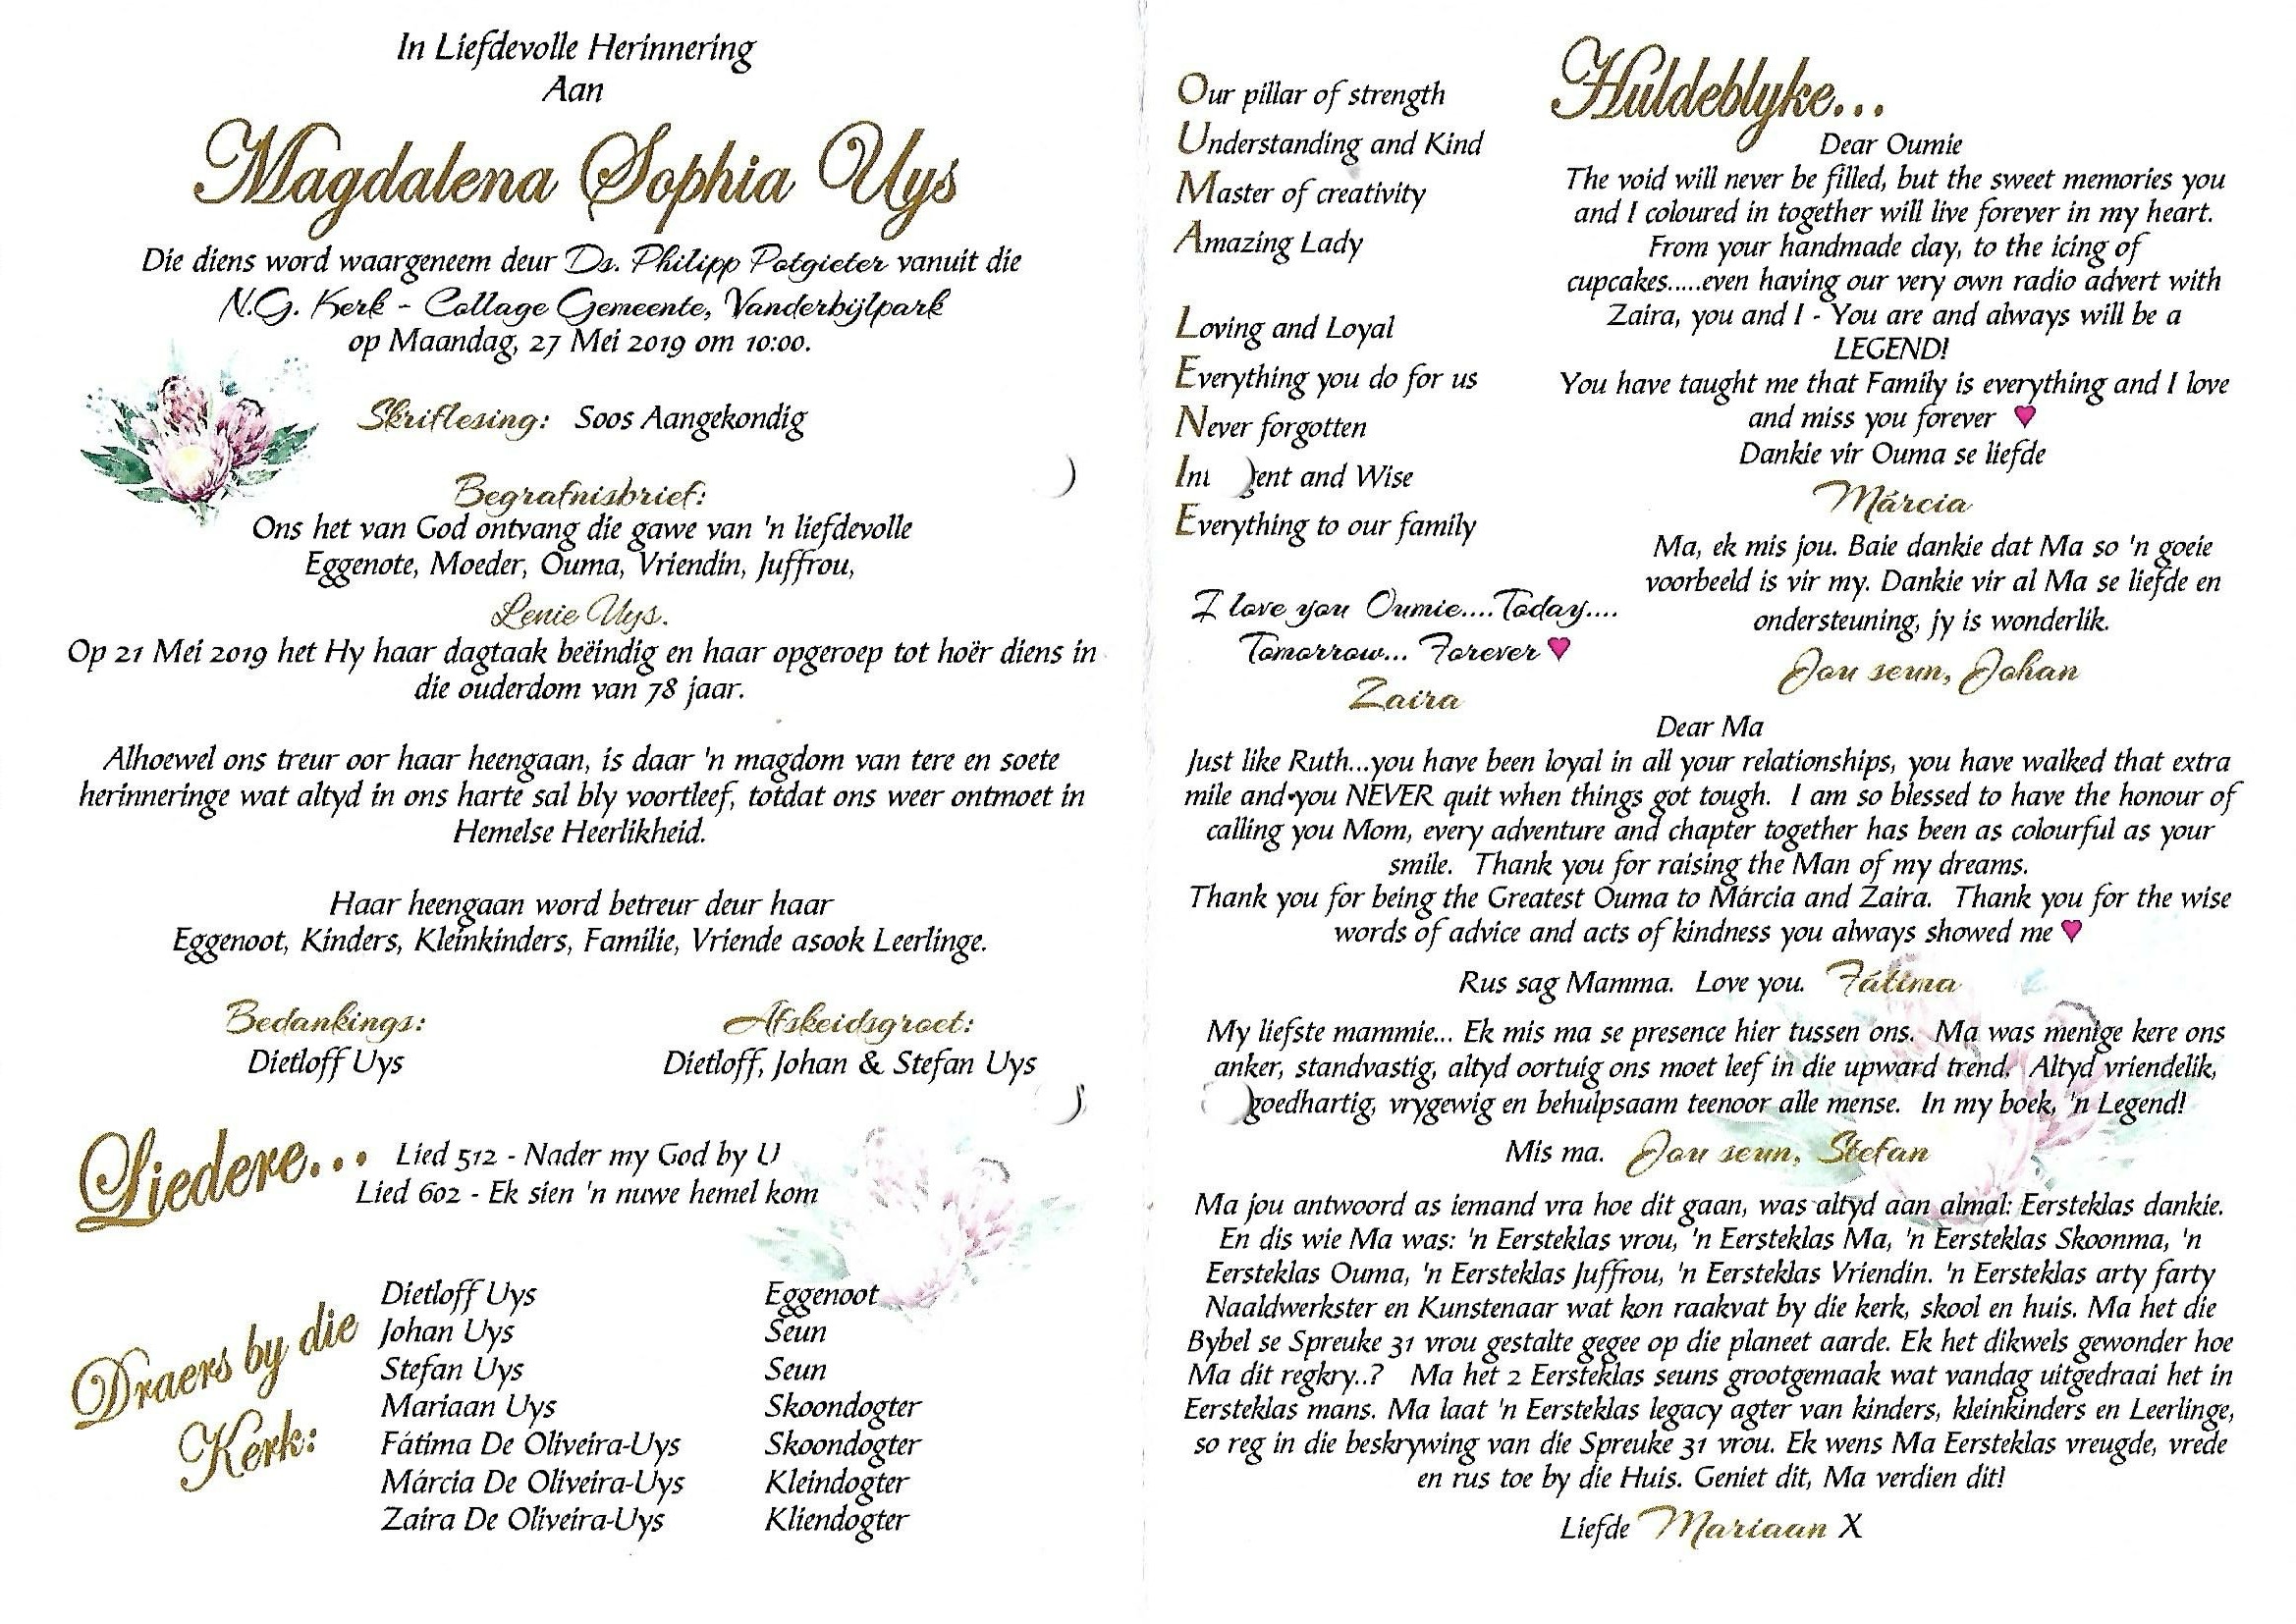 In Liefdevolle Herinnering
Aan
Magdalena Sophia Uys
Die diens word waargeneem deur Ds. Philipp Potgieter vanuit die
N.G. Kerk - Collage Gemeente, Vanderbijlpark
op Maandag, 27 Mei 2019 om 10:00.
Skriflesing: Soos Aangekondig
Begrafnisbrief:
Ons het van God ontvang die gawe van 'n liefdevolle
Eggenote, Moeder, Ouma, Vriendin, Juffrou,
Lenie Uys.
Op 21 Mei 2019 het Hy haar dagtaak beëindig en haar opgeroep tot hoër diens in
die ouderdom van 78 jaar.
Alhoewel ons treur oor haar heengaan, is daar 'n magdom van tere en soete
herinneringe wat altyd in ons harte sal bly voortleef, totdat ons weer ontmoet in
Hemelse Heerlikheid.
Haar heengaan word betreur deur haar
Eggenoot, Kinders, Kleinkinders, Familie, Vriende asook Leerlinge.
Bedankings:
Dietloff Uys
Afskeidsgroet:
Dietloff, Johan & Stefan Uys
Liedere...
Lied 512 - Nader my God by U
Lied 602 - Ek sien 'n nuwe hemel kom
Draers by die
Kerk:
Dietloff Uys Eggenoot
Johan Uys Seun
Stefan Uys Seun
Mariaan Uys Skoondogter
Fátima De Oliveira-Uys Skoondogter
Márcia De Oliveira-Uys Kleindogter
Zaira De Oliveira-Uys Kliendogter
Our pillar of strength
Understanding and Kind
Master of creativity
Amazing Lady
Loving and Loyal
Everything you do for us
Never forgotten
and Wise
Everything to our family
I love you Oumie....Today....
Tomorrow... Forever ♥
Zaira
Huldeblyke...
Dear Oumie
The void will never be filled, but the sweet memories you
and I coloured in together will live forever in my heart.
From your handmade clay, to the icing of
cupcakes.....even having our very own radio advert with
Zaira, you and I - You are and always will be a
LEGEND!
You have taught me that Family is everything and I love
and miss you forever ♥
Dankie vir Ouma se liefde
Márcia
Ma, ek mis jou. Baie dankie dat Ma so 'n goeie
voorbeeld is vir my. Dankie vir al Ma se liefde en
ondersteuning, jy is wonderlik.
Jou seun, Johan
Dear Ma
Just like Ruth...you have been loyal in all your relationships, you have walked that extra
mile and you NEVER quit when things got tough. I am so blessed to have the honour of
calling you Mom, every adventure and chapter together has been as colourful as your
smile. Thank you for raising the Man of my dreams.
Thank you for being the Greatest Ouma to Márcia and Zaira. Thank you for the wise
words of advice and acts of kindness you always showed me ♥
Rus sag Mamma. Love you. Fátima
My liefste mammie... Ek mis ma se presence hier tussen ons. Ma was menige kere ons
anker, standvastig, altyd oortuig ons moet leef in die upward trend. Altyd vriendelik,
goedhartig, vrygewig en behulpsaam teenoor alle mense. In my boek, 'n Legend!
Mis ma. Jou seun, Stefan
Ma jou antwoord as iemand vra hoe dit gaan, was altyd aan almal: Eersteklas dankie.
En dis wie Ma was: 'n Eersteklas vrou, 'n Eersteklas Ma, 'n Eersteklas Skoonma, 'n
Eersteklas Ouma, 'n Eersteklas Juffrou, 'n Eersteklas Vriendin. 'n Eersteklas arty farty
Naaldwerkster en Kunstenaar wat kon raakvat by die kerk, skool en huis. Ma het die
Bybel se Spreuke 31 vrou gestalte gegee op die planeet aarde. Ek het dikwels gewonder hoe
Ma dit regkry..? Ma het 2 Eersteklas seuns grootgemaak wat vandag uitgedraai het in
Eersteklas mans. Ma laat 'n Eersteklas legacy agter van kinders, kleinkinders en Leerlinge,
so reg in die beskrywing van die Spreuke 31 vrou. Ek wens Ma Eersteklas vreugde, vrede
en rus toe by die Huis. Geniet dit, Ma verdien dit!
Liefde Mariaan X